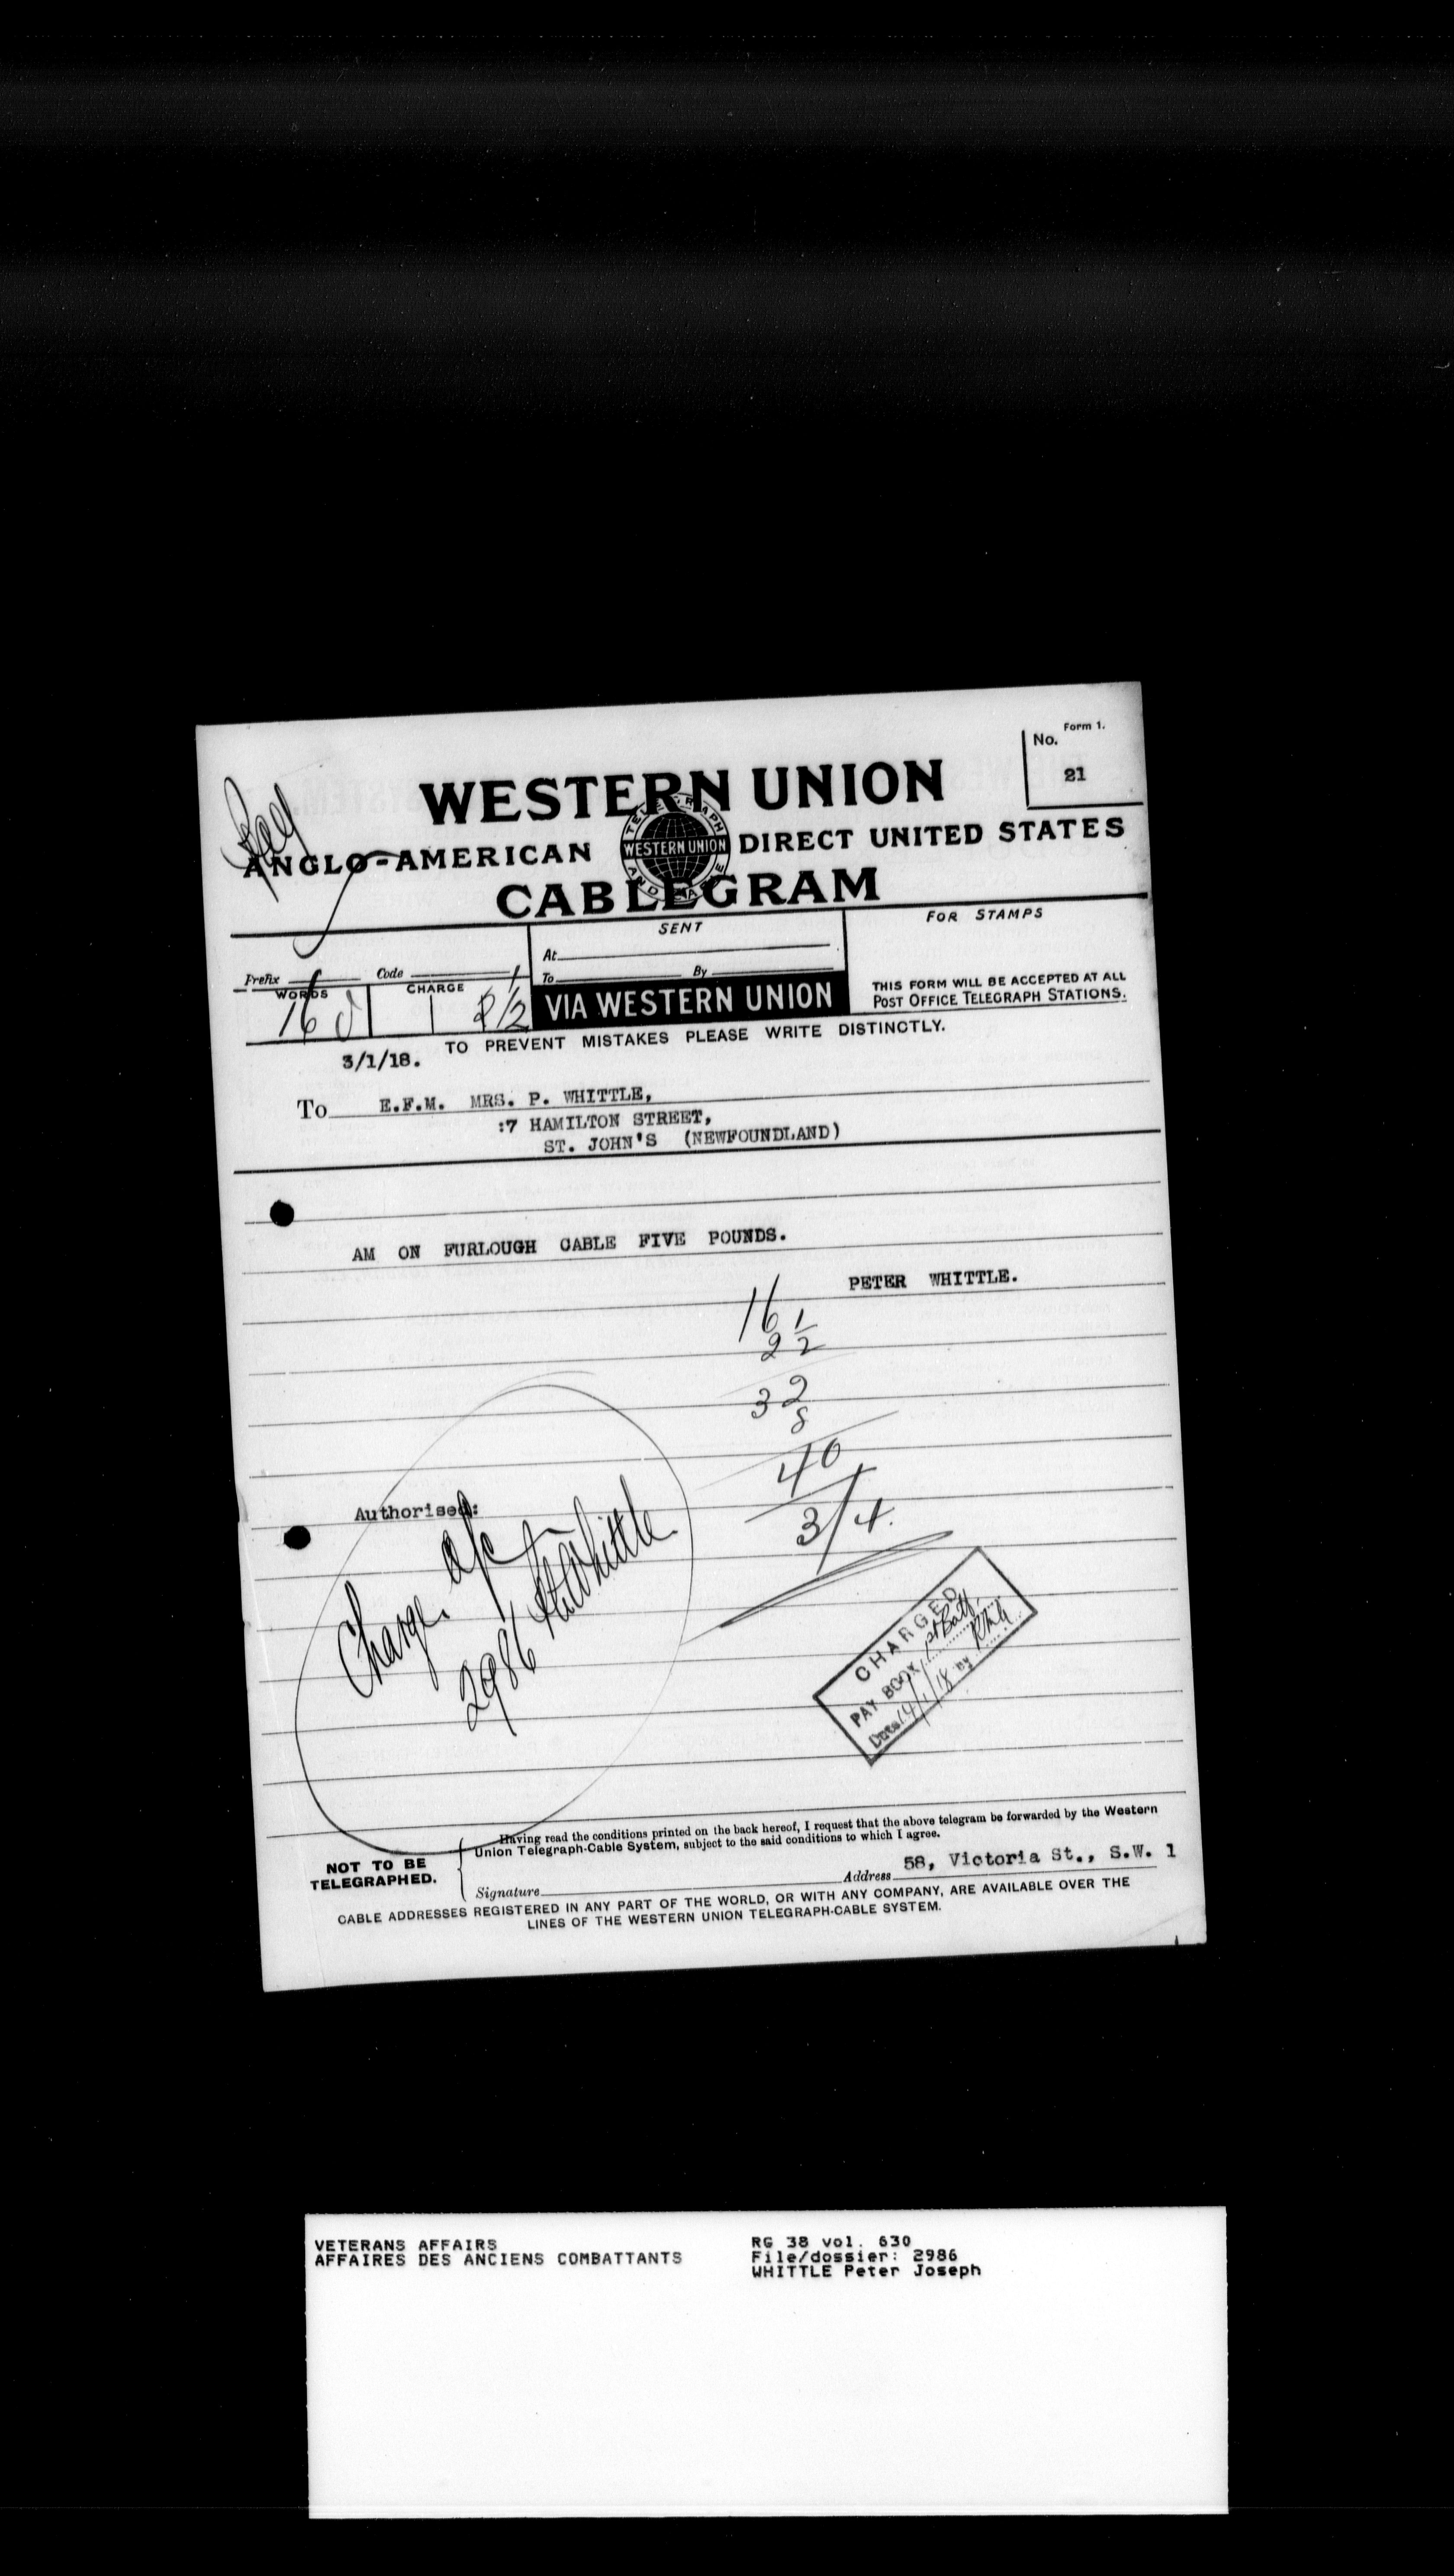 Form 1.
No.
21
WESTERN UNION
TELEGRAPH AND CABLE
WESTERN UNION
ANGLO-AMERICAN DIRECT UNITED STATES
CABLEGRAM
SENT
FOR STAMPS
At
Prefix Code
To By
WORDS CHARGE
THIS FORM WILL BE ACCEPTED AT ALL
POST OFFICE TELEGRAPH STATIONS.
16 2 1/2
VIA WESTERN UNION
TO PREVENT MISTAKES PLEASE WRITE DISTINCTLY.
3/1/18.
To E.F.M. MRS. P. WHITTLE,
:7 HAMILTON STREET,
ST. JOHN'S (NEWFOUNDLAND)
AM ON FURLOUGH CABLE FIVE POUNDS.
PETER WHITTLE.
16
2 1/2
32
8
40
3/4.
Authorised:
Charge a/c
2986 Pt Whittle
CHARGED
PAY BOOK
Date 14/1/18 by
Having read the conditions printed on the back hereof, I request that the above telegram be forwarded by the Western
Union Telegraph-Cable System, subject to the said conditions to which I agree.
NOT TO BE
TELEGRAPHED.
Signature Address 58, Victoria St., S.W. 1
CABLE ADDRESSES REGISTERED IN ANY PART OF THE WORLD, OR WITH ANY COMPANY, ARE AVAILABLE OVER THE
LINES OF THE WESTERN UNION TELEGRAPH-CABLE SYSTEM.
VETERANS AFFAIRS
AFFAIRES DES ANCIENS COMBATTANTS
RG 38 vol. 630
File/dossier: 2986
WHITTLE Peter Joseph